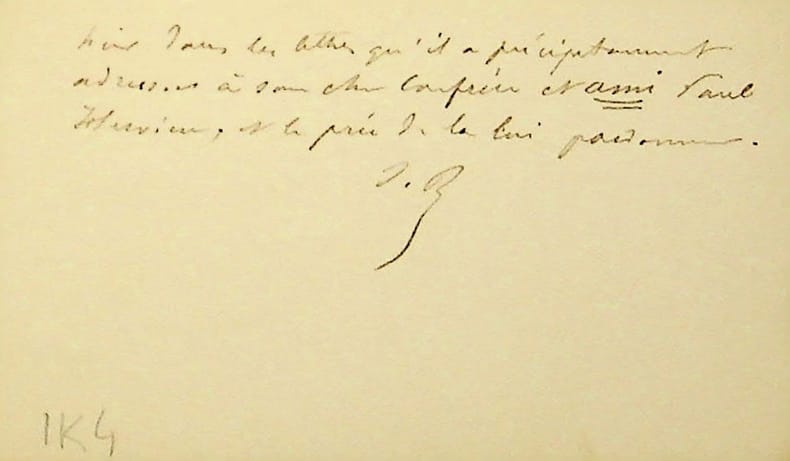 hier dans la lettre qu'il a précipitamment
adressée à son cher Confrère et ami Paul
Hervieu, et le prie de la lui pardonner.
J. R
1K4